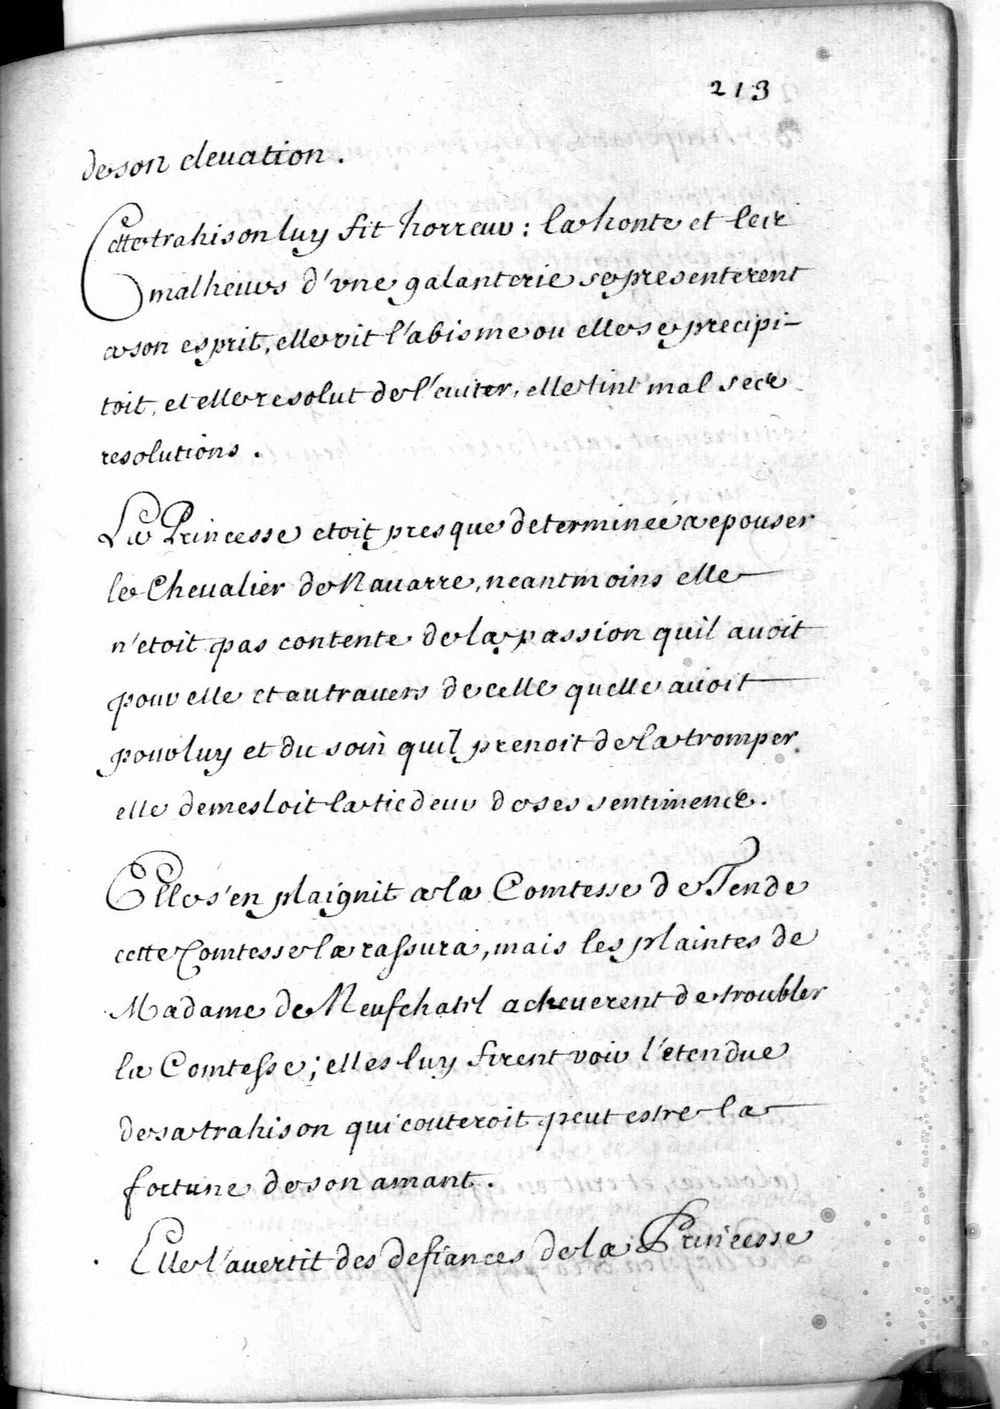 213
de son eleuation.
Cette trahison luy fit horreur : la honte et les
malheurs d'vne galanterie se presenterent
a son esprit, elle vit l'abisme ou elle se precipi-
toit, et elle resolut de l'euiter, elle tint mal ses
resolutions.
La Princesse etoit presque determineé a epouser
le Chevalier de Nauarre, neantmoins elle
n'etoit pas contente de la passion quil avoit
pour elle et au travers de celle quelle avoit
pour luy et du soin quil prenoit de la tromper
elle demesloit la tiedeur de ses sentimens.
Elle s'en plaignit a la Comtesse de Tende
cette Comtesse la rassura, mais les plaintes de
Madame de Neufchatel acheuerent de troubler
la Comtesse ; elles luy firent voir l'etendue
de sa trahison qui couteroit peut estre la
fortune de son amant.
Elle l'auertit des defiances de la Princesse